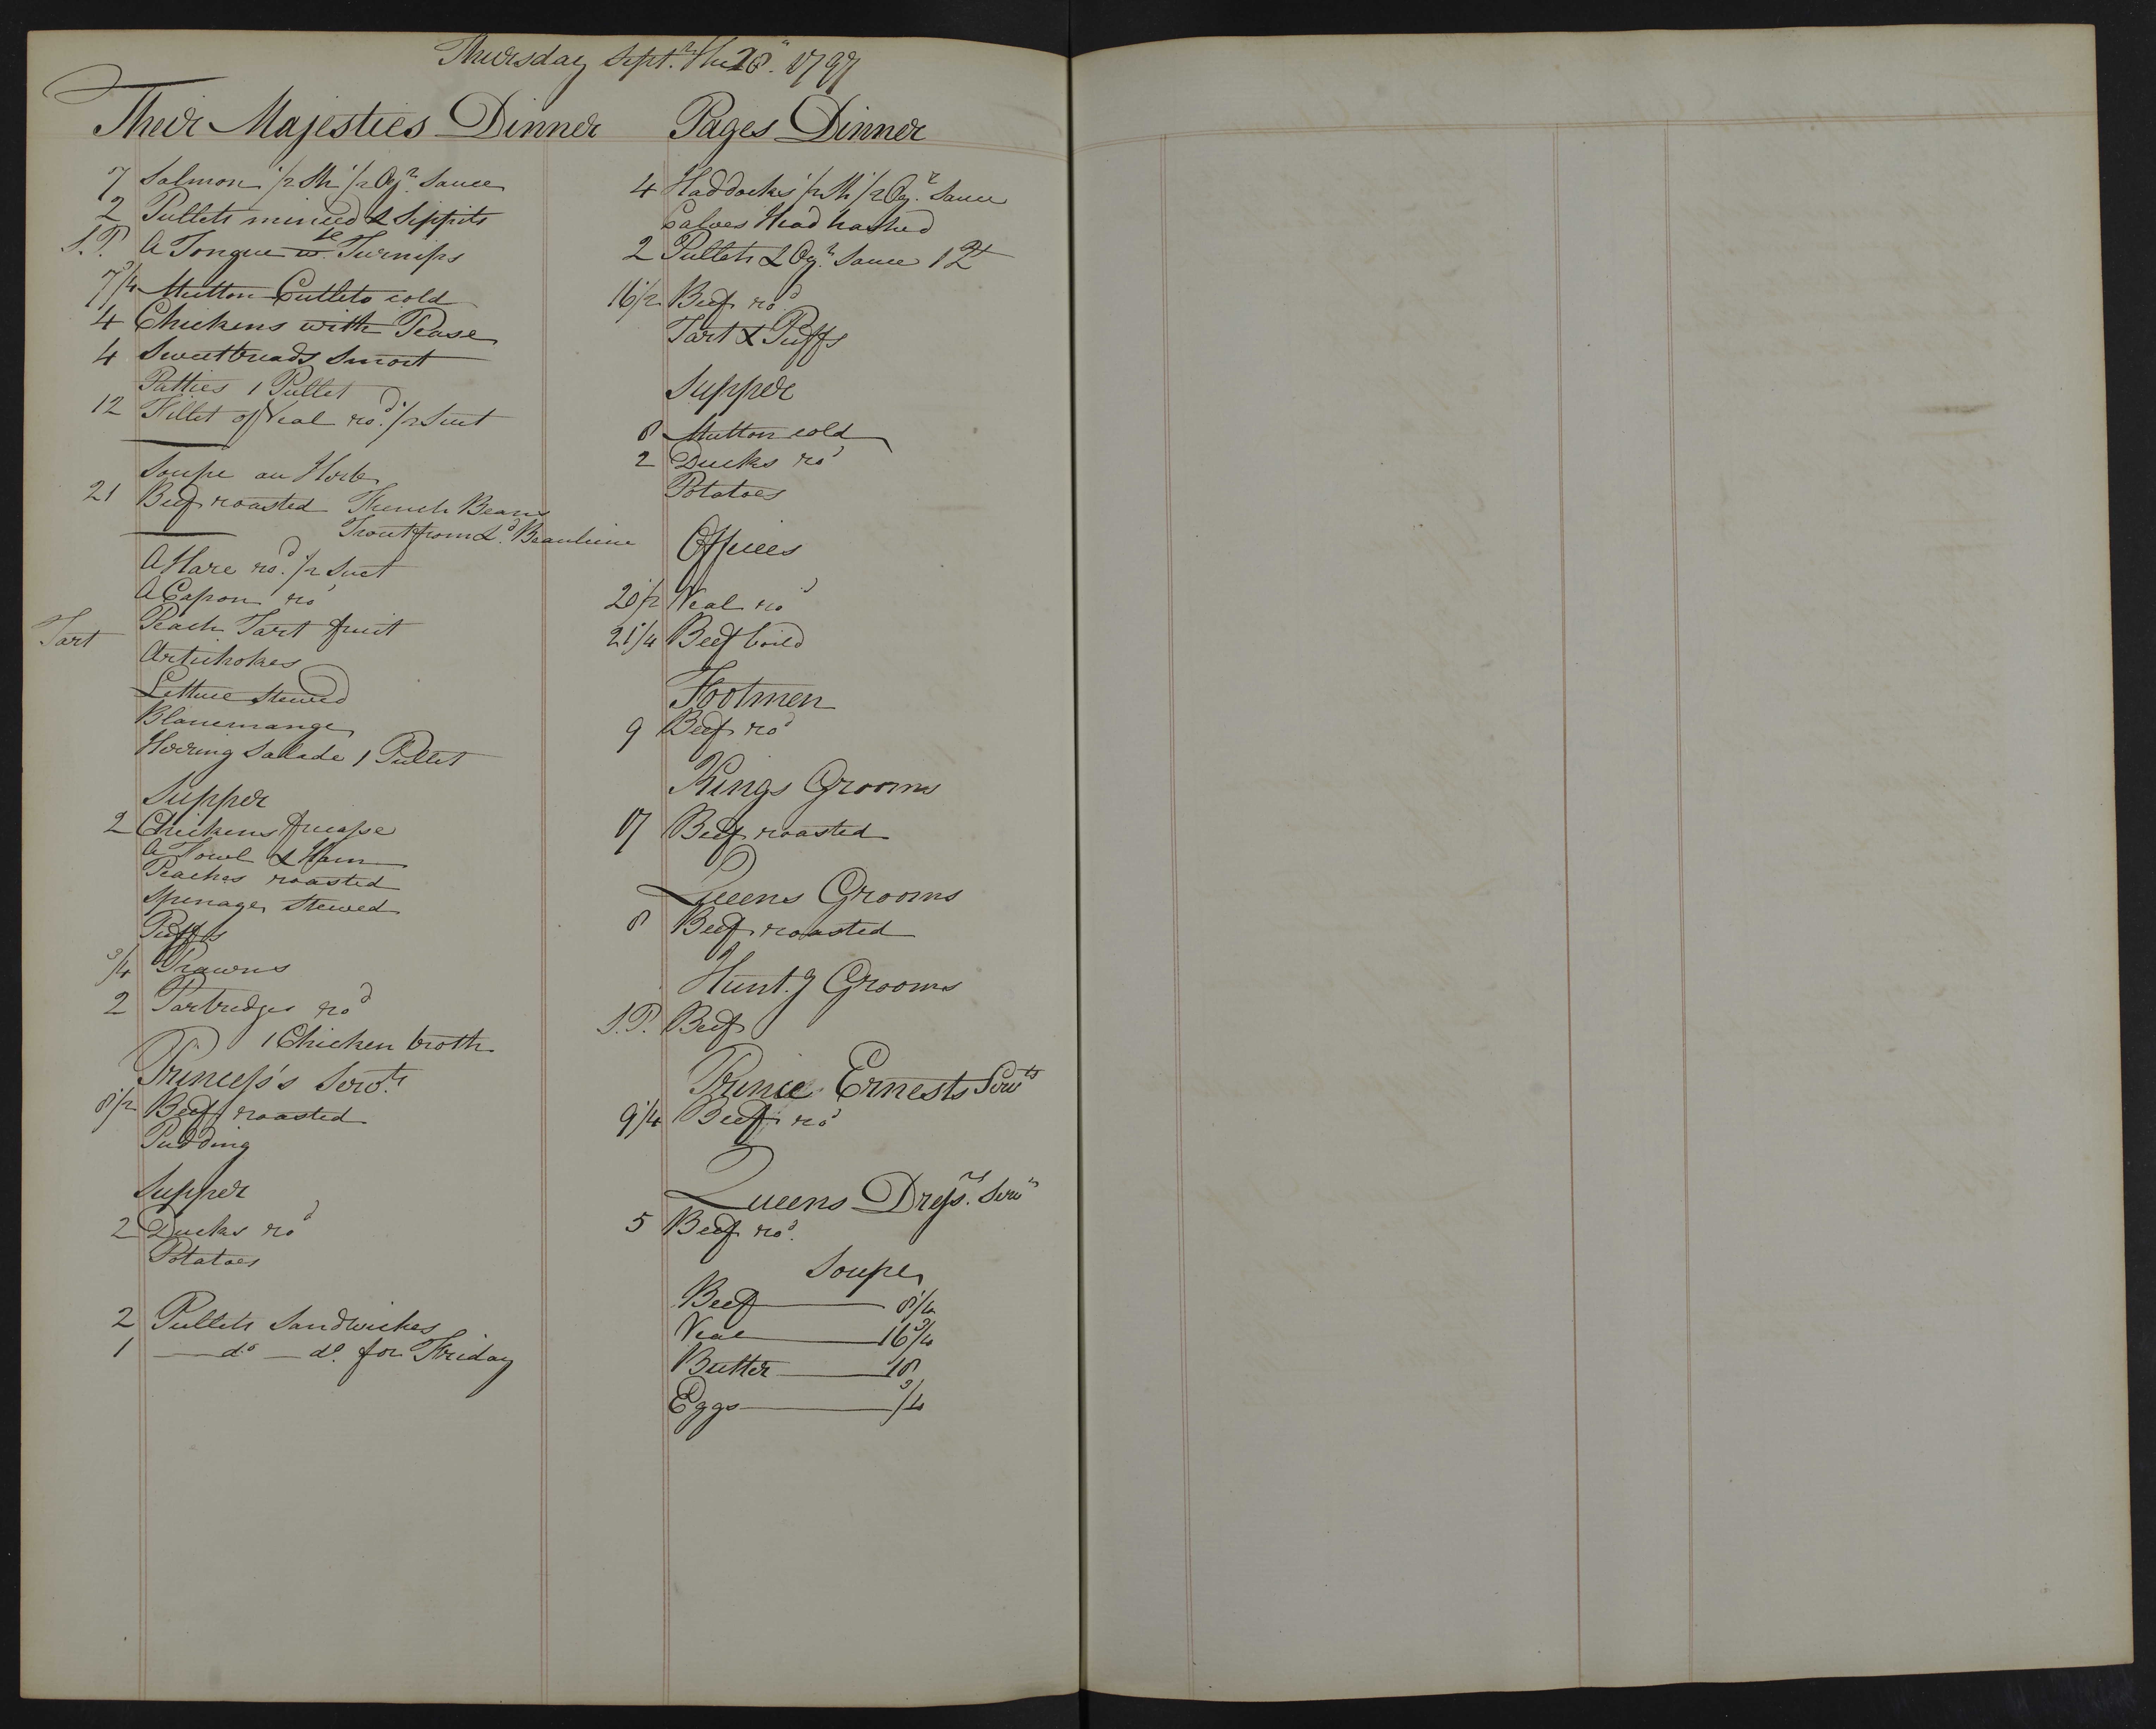 Thursday Sept.r the 28th 1797
Their Majesties Dinner
7 Salmon 1/2 Sh 1/2 Oy.r Sauce
2 Pullets minced & Sippits
S.P. A Tongue w. Turnips
7 3/4 Mutton Cutlets cold
4 Chickens with Pease
4 Sweetbreads Smort
Patties 1 Pullet
12 Fillet of Veal ro.d 1/2 Suet
Soupe au Herb
21 Beef roasted French Beans
Trout from L.d Beaulieue
A Hare ro.d 1/2 Suet
A Capon ro.d
Tart Peach Tart fruit
Artichokes
Lettuce Stewed
Blancmange
Herring Salade 1 Pullet
Supper
2 Chickens fricasse
A Fowl & Ham
Peaches roasted
Spinage Stewed
Puffs
3/4 Prawns
2 Partredges ro.d
1 Chicken broth
Princess's Serv.ts
8 1/2 Beef roasted
Pudding
Supper
2 Ducks ro.d
Potatoes
2 Pullets Sandwiches
1 — d.o — d.o for Friday
Pages Dinner
4 Haddocks 1/2 Sh 1/2 Oy.r Sauce
Calves Head hashed
2 Pullets & Oy.r Sauce 1 Qt
16 1/2 Beef ro.d
Tart & Puffs
Supper
8 Mutton cold
2 Ducks ro.d
Potatoes
Offices
20 1/2 Veal ro.d
21 1/4 Beef boild
Footmen
9 Beef ro.d
Kings Grooms
17 Beef roasted
Queens Grooms
8 Beef roasted
Hunt.g Grooms
S.P. Beef
Prince Ernests Serv.ts
9 1/4 Beef ro.d
Queens Dress.rs Serv.ts
5 Beef ro.d
Soupe
Beef — 8 1/4
Veal — 16 3/4
Butter — 18
Eggs — 3/4